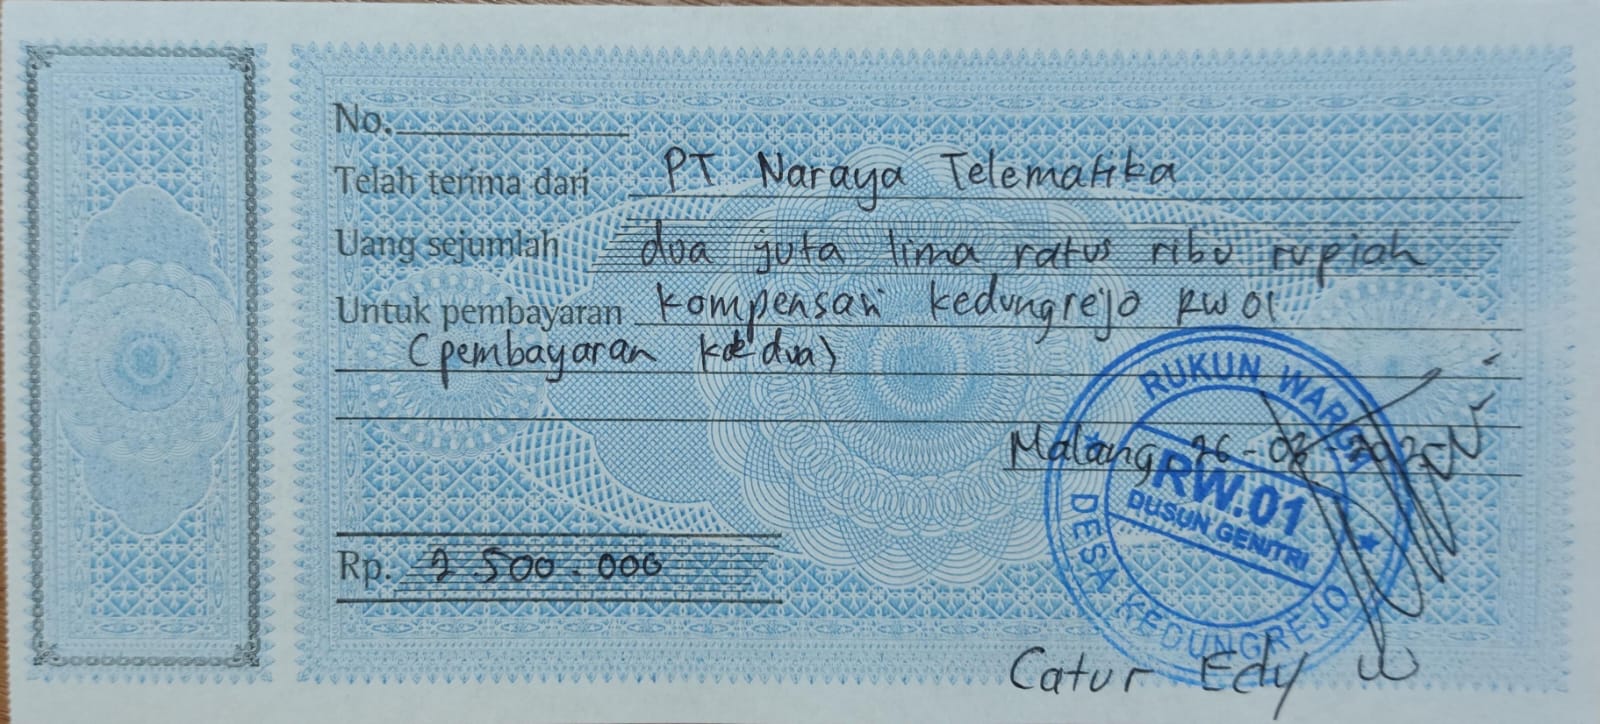 No.
Telah terima dari PT Naraya Telematika
Uang sejumlah dua juta lima ratus ribu rupiah
Untuk pembayaran kompensasi kedungrejo RW 01
(pembayaran ke dua)
Malang, 26-02-202
Rp. 2.500.000
RUKUN WARGA
RW.01
DUSUN GENITRI
DESA KEDUNGREJO
Catur Edy W